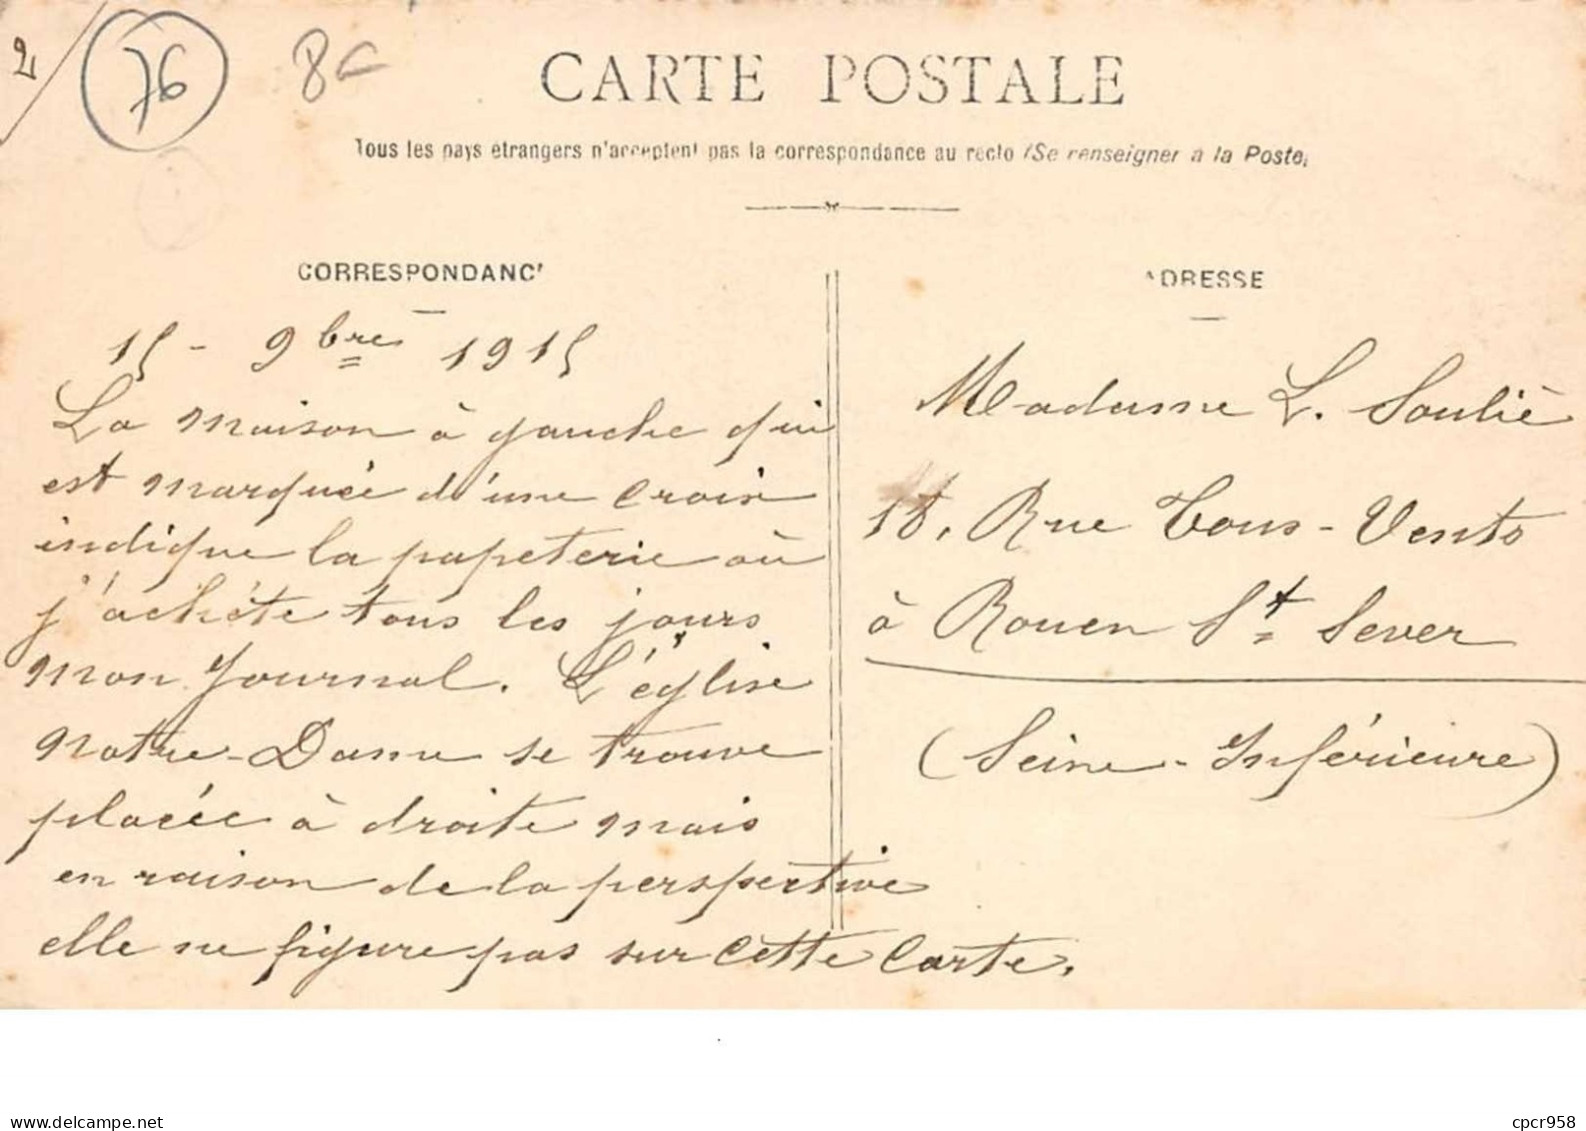 2
76
8€
CARTE POSTALE
Tous les pays étrangers n'acceptent pas la correspondance au recto (Se renseigner à la Poste)
CORRESPONDANCE
15 - 9bre 1915
La maison à gauche qui
est marquée d'une croix
indique la papeterie où
j'achète tous les jours
mon Journal. L'église
Notre-Dame se trouve
placée à droite mais
en raison de la perspective
elle ne figure pas sur cette Carte.
ADRESSE
Madame L. Soulié
18, Rue Tous-Vents
à Rouen St Sever
(Seine-Inférieure)
www.delcampe.net
cpcr958